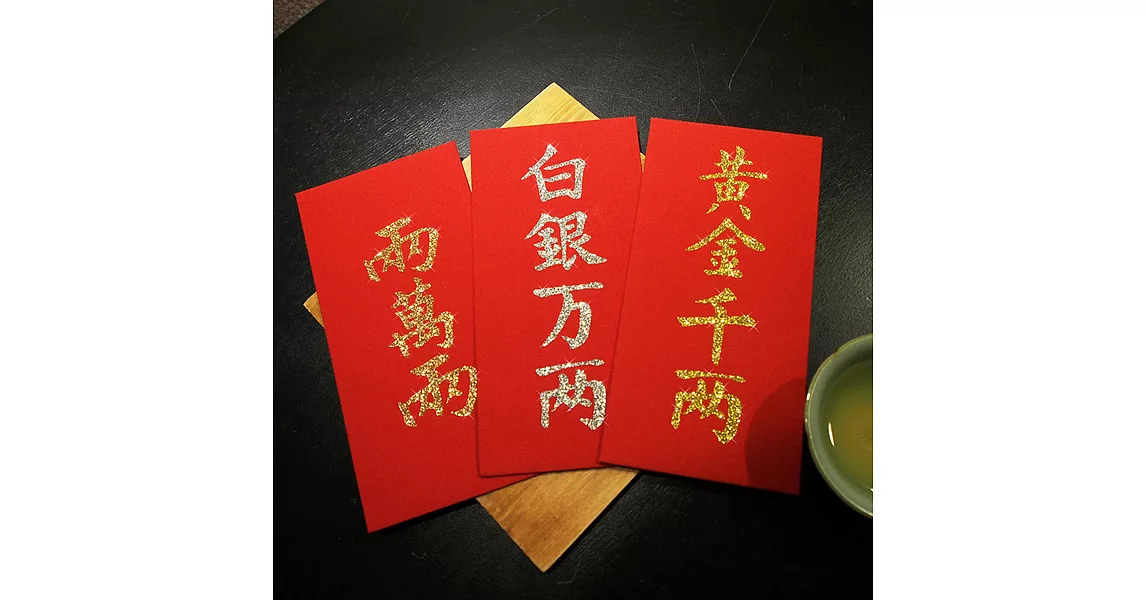 兩萬兩
白銀万两
黃金千两